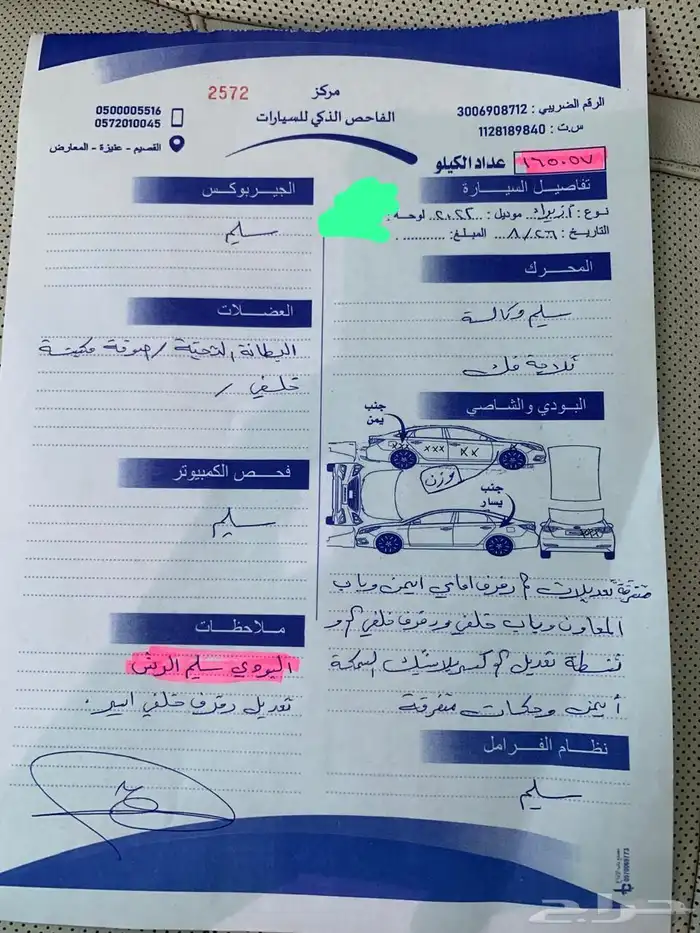 الرقم الضريبي : 3006908712
س.ت : 1128189840
مركز
الفاحص الذكي للسيارات
2572
0500005516
0572010045
القصيم - عنيزة - المعارض
عداد الكيلو ١٦٥٠٥٧
تفاصيل السيارة
نوع : أزيرا موديل : ٢٠٢٢ لوحة :
التاريخ : ٨/٢٦ المبلغ :
المحرك
سليم وكالة
ثلاجة فك
البودي والشاصي
جنب
يمن
xxx xxx xx
وزن
جنب
يسار
xxx
متفرقة تعديلات م رفرف امامي ايمن وباب
المعاون وباب خلفي ورفرف خلفي م و
شنطة تعديل م كسر بلاستيك السمكة
أيمن وحكات متفرقة
نظام الفرامل
سليم
الجيربوكس
سليم
العضلات
البطانة التحتية / صوفة مكينة
خلفي /
فحص الكمبيوتر
سليم
ملاحظات
البودي سليم الرش
تعديل رفرف خلفي ايسر
حراج